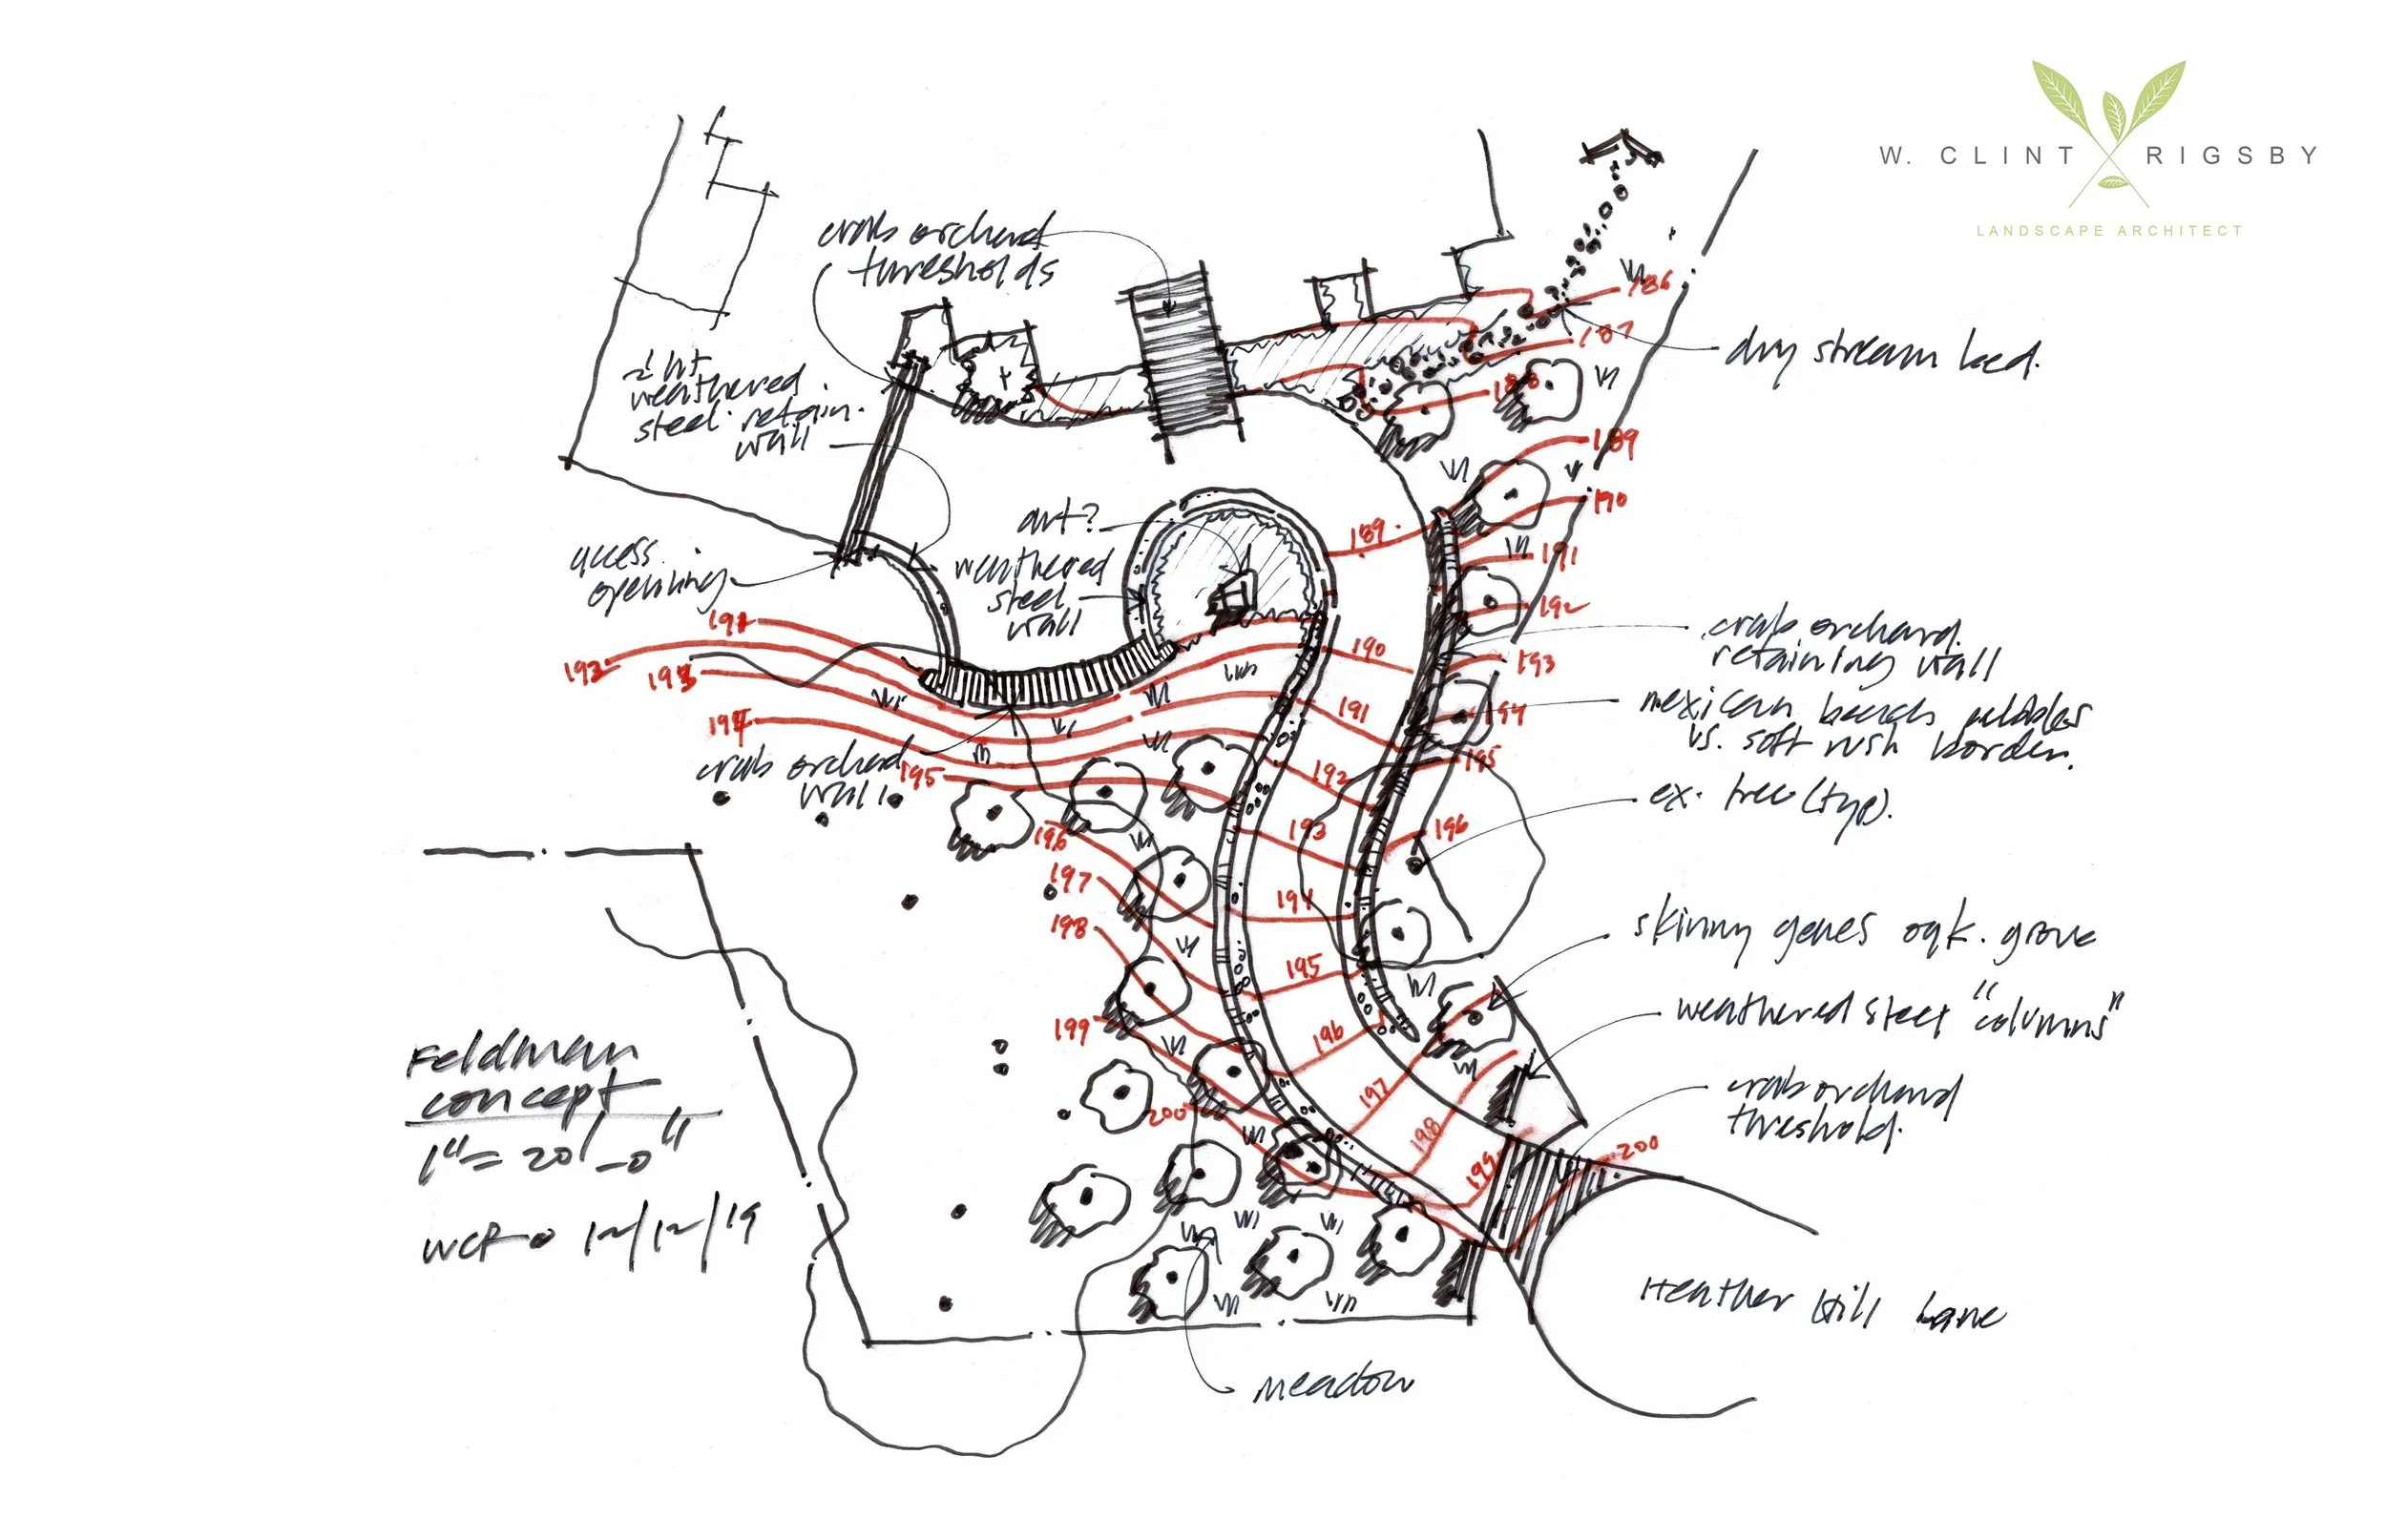 W. CLINT RIGSBY
LANDSCAPE ARCHITECT
crab orchard
thresholds
ht
weathered
steel retain.
wall
access
opening
art?
weathered
steel
wall
crab orchard
wall
dry stream bed.
crab orchard
retaining wall
mexican beach pebbles
vs. soft rush border.
ex. tree (typ).
skinny genes oak. grove
weathered steel "columns"
crab orchard
threshold.
Heather Hill Lane
meadow
Feldman
concept
1"= 20'-0"
WCR 12/12/19
186
187
188
189
190
191
192
193
194
195
196
189
190
191
192
193
194
195
196
197
198
199
200
191
192
193
194
195
196
197
198
199
200